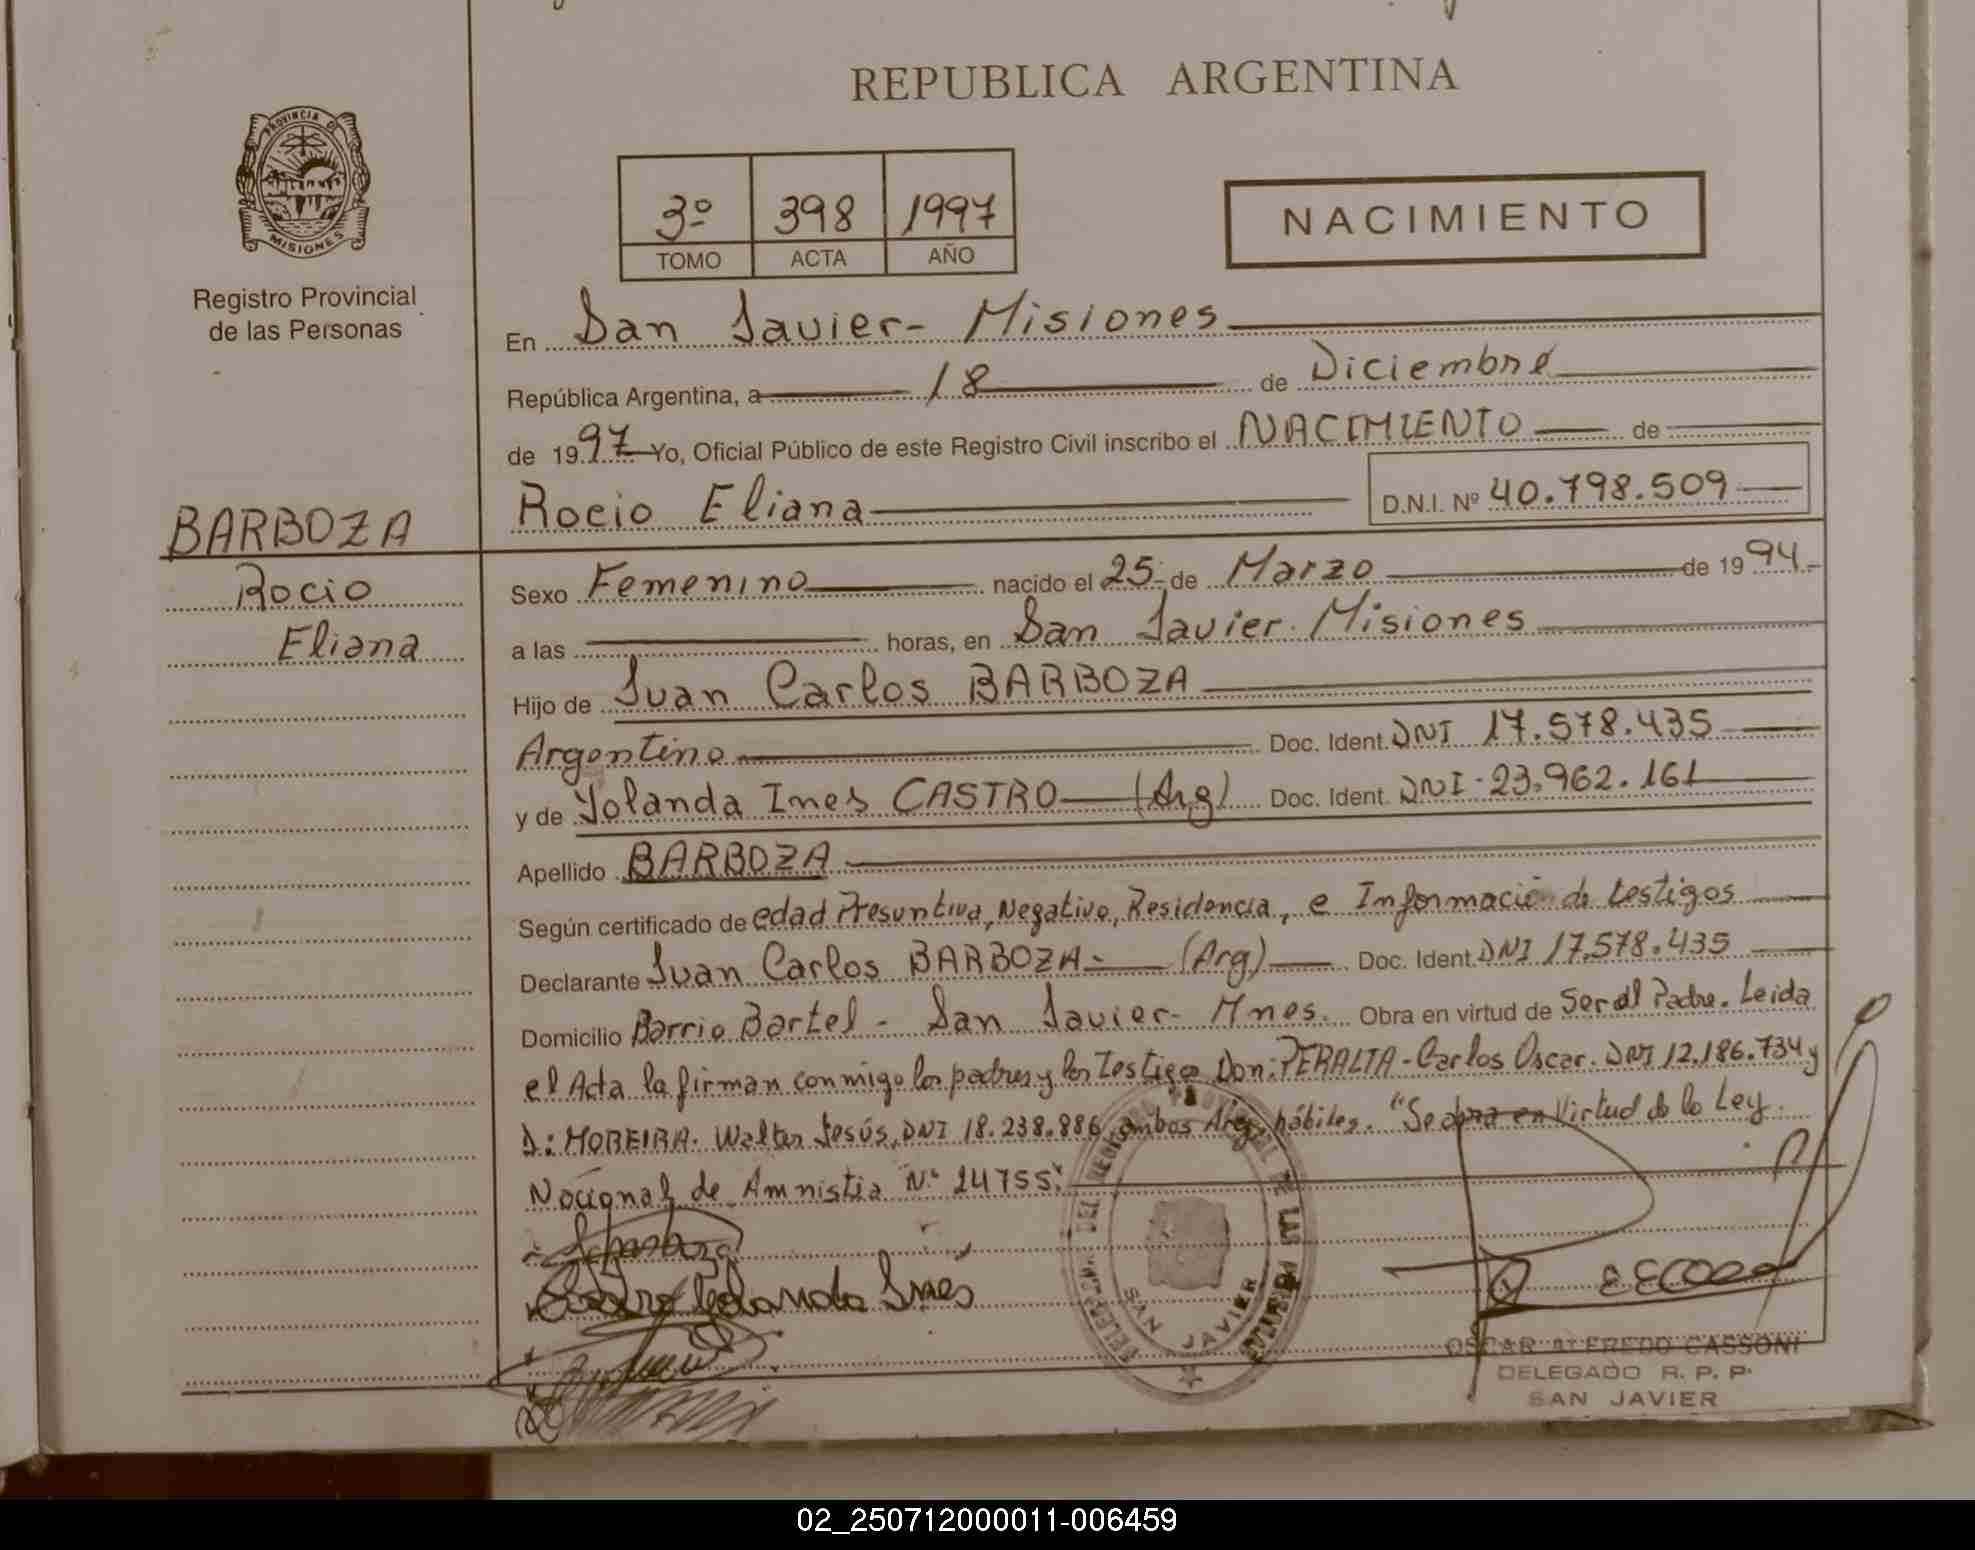 REPUBLICA ARGENTINA
PROVINCIA DE
MISIONES
Registro Provincial
de las Personas
3º 398 1997
TOMO ACTA AÑO
NACIMIENTO
En San Javier- Misiones
República Argentina, a 18 de Diciembre
de 1997 Yo, Oficial Público de este Registro Civil inscribo el NACIMIENTO de
Rocio Eliana D.N.I. Nº 40.798.509
BARBOZA
Rocio
Eliana
Sexo Femenino nacido el 25- de Marzo de 1994.-
a las horas, en San Javier. Misiones
Hijo de Juan Carlos BARBOZA
Argentino Doc. Ident. DNI 17.578.435
y de Yolanda Ines CASTRO (Arg) Doc. Ident. DNI-23.962.161
Apellido BARBOZA
Según certificado de edad Presuntiva, Negativo, Residencia, e Informació de testigos
Declarante Juan Carlos BARBOZA.- (Arg) Doc. Ident. DNI 17.578.435
Domicilio Barrio Bartel - San Javier- Mnes. Obra en virtud de Ser el Padre. Leida
el Acta la firman conmigo los padres y los Testigo Don: PERALTA - Carlos Oscar. DNI 12.186.734 y
D: MOREIRA. Walter Jesús, DNI 18.238.886 ambos Arg. hábiles. "Se obra en Virtud de la Ley
Nacional de Amnistia Nº 24755".
Castro Yolanda Ines
SAN JAVIER
OSCAR ALFREDO CASSONI
DELEGADO R. P. P.
SAN JAVIER
02_250712000011-006459